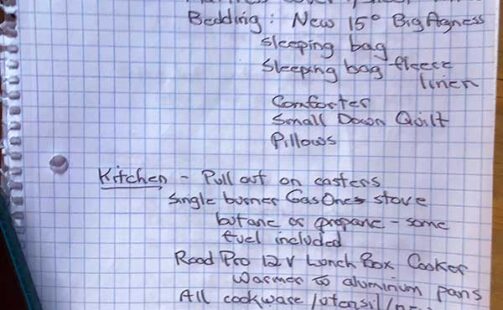 Bedding: New 15° Big Agness
sleeping bag
sleeping bag fleece
linen
Comforter
Small Down Quilt
Pillows
Kitchen - Pull out on casters
Single burner GasOne stove
butane or propane - some
fuel included
Road Pro 12V Lunch Box Cooker
Warmer to aluminium pans
All cookware / utensil /